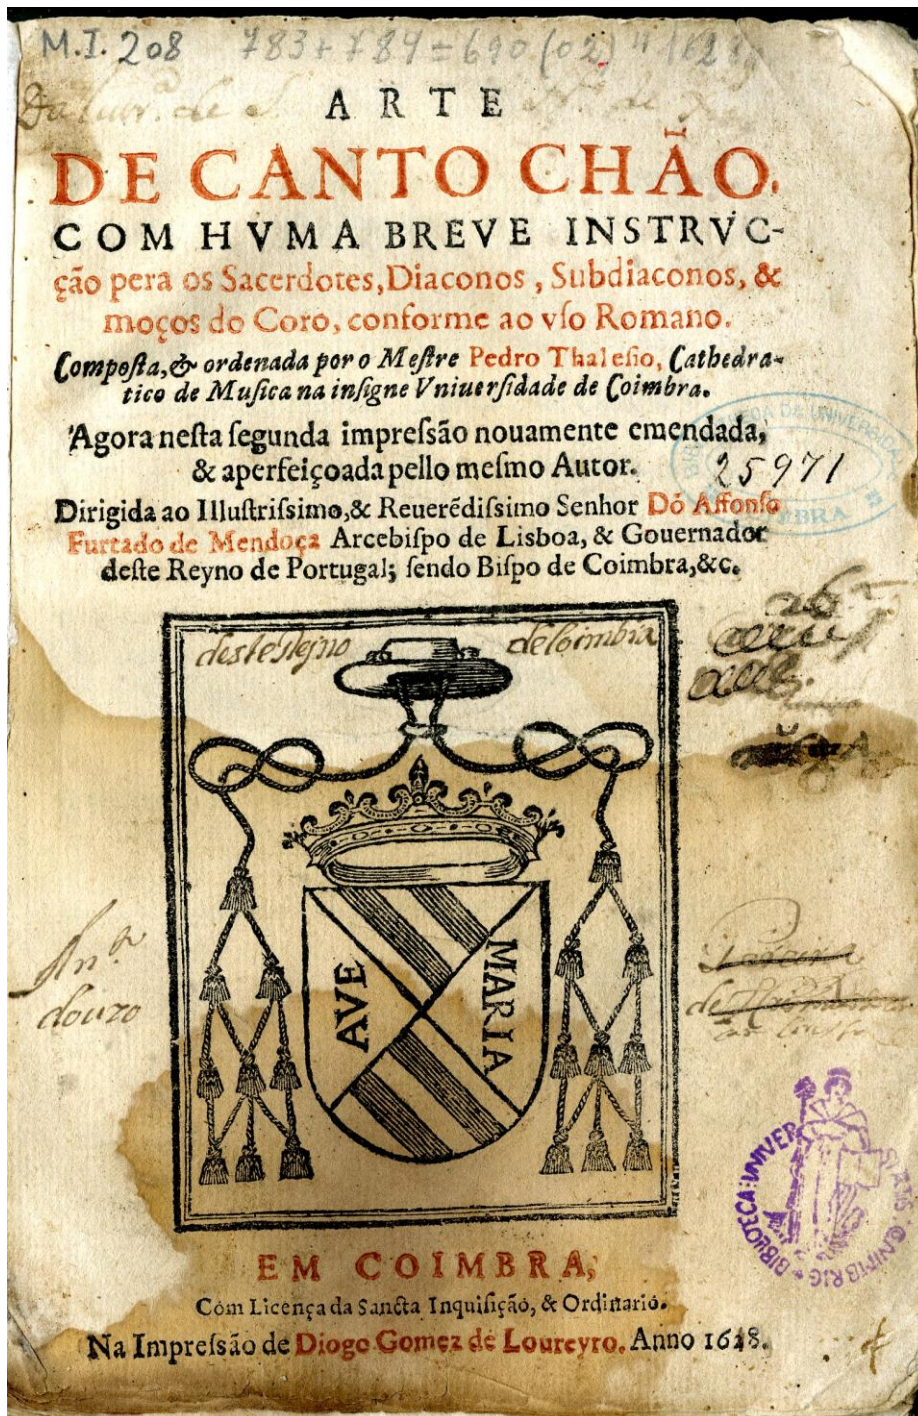 M.I. 208 783+784=690(02)"162
ARTE
DE CANTO CHÃO.
COM HVMA BREVE INSTRVC-
ção pera os Sacerdotes, Diaconos, Subdiaconos, &
moços do Coro, conforme ao vſo Romano.
Compoſta, & ordenada por o Meſtre Pedro Thaleſio, Cathedra-
tico de Muſica na inſigne Vniuerſidade de Coimbra.
Agora neſta ſegunda impreſsão nouamente emendada,
& aperfeiçoada pello meſmo Autor.
25971
Dirigida ao Illuſtriſsimo, & Reuerẽdiſsimo Senhor Dõ Affonſo
Furtado de Mendoça Arcebiſpo de Lisboa, & Gouernador
deſte Reyno de Portugal; ſendo Biſpo de Coimbra, &c.
deste Rejno de Coimbra
AVE
MARIA
douzo
de
BIBLIOTECA UNIVER
EM COIMBRA,
Com Licença da Sancta Inquiſição, & Ordinario.
Na Impreſsão de Diogo Gomez de Loureyro. Anno 1628.